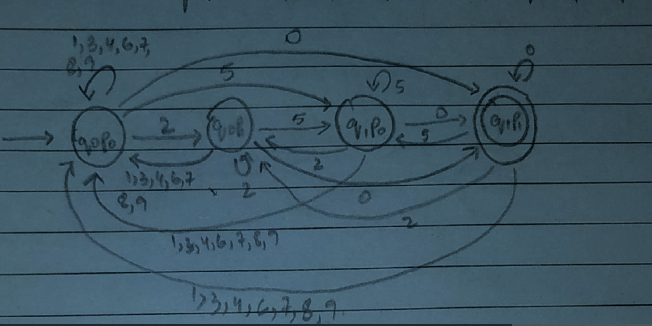 0
1,3,4,6,7,
8,9
0
5
5
q0p0
2
q0p1
5
q1p0
0
q1p1
5
2
1,3,4,6,7
8,9
2
0
2
1,3,4,6,7,8,9
1,3,4,6,7,8,9